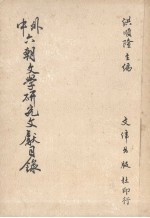 洪順隆主編
中外六朝文學研究文獻目錄
文津出版社印行